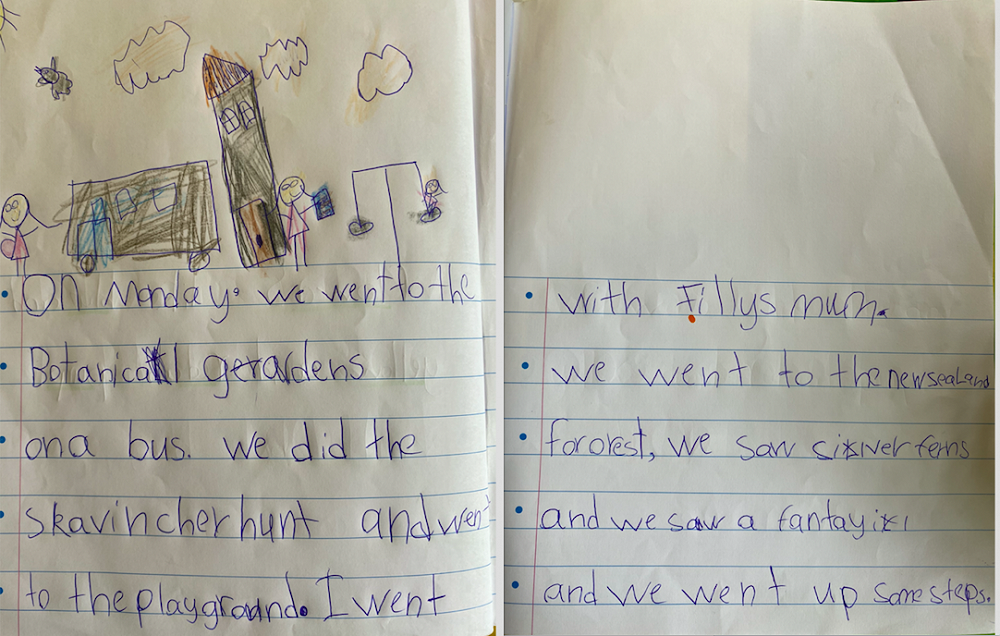 On Monday. we went to the
Botanical gerardens
on a bus. we did the
skavincher hunt and went
to the playground. I went
with Fillys mum.
we went to the new sea Land
fororest, we saw silver ferns
and we saw a fantayil
and we went up some steps.